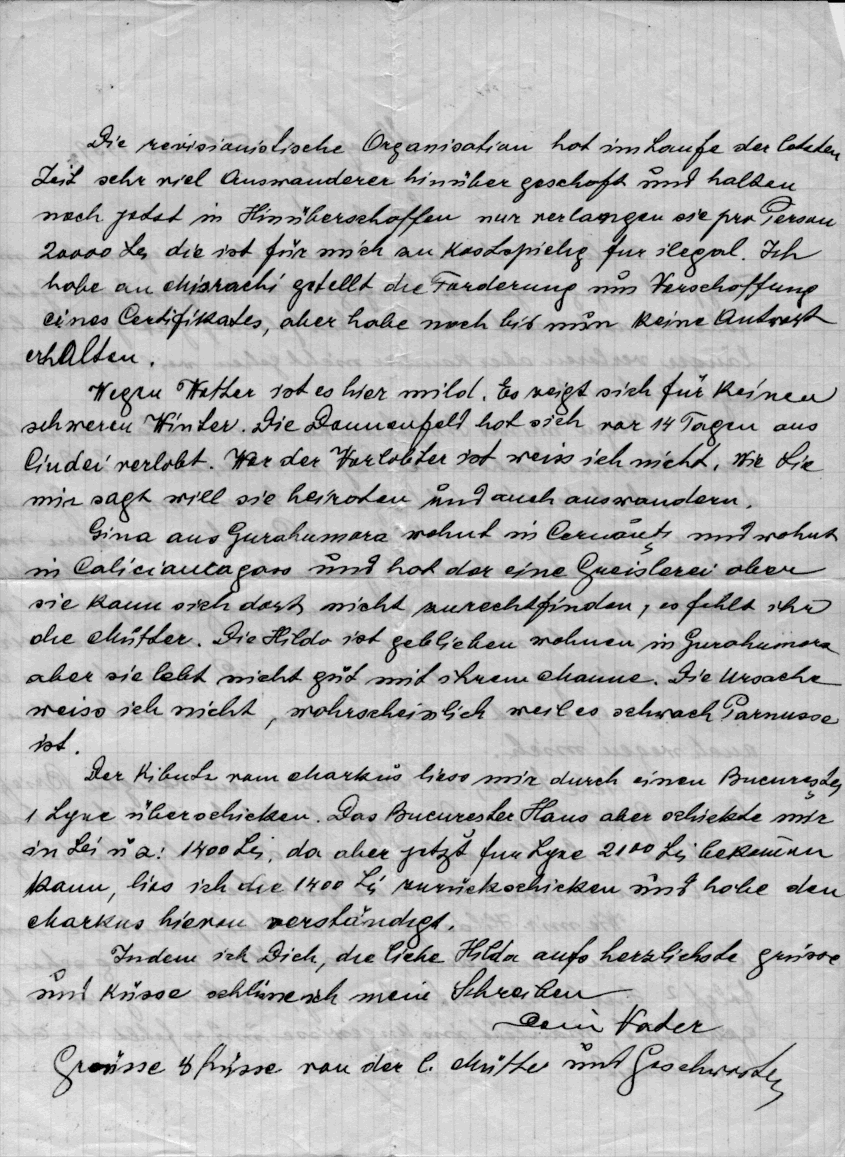 Die revisionistische Organisation hat im Laufe der letzten
Zeit sehr viel Auswanderer hinüber geschaft und halten
noch jetzt in Hinüberschaffen nur verlangen sie pro Person
20000 Lei die ist für mich zu kostspielig fur ilegal. Ich
habe an Misrachi getellt die Forderung um Verschaffung
eines Certifikates, aber habe noch bis nun keine Antwort
erhalten.
Wegen Wetter ist es hier mild. Es zeigt sich für keinen
schweren Winter. Die Dannenfeld hat sich vor 14 Tagen aus
verlobt. Wer der Verlobter ist weiss ich nicht, wie Sie
mir sagt will sie heiraten und auch auswandern.
Gina aus Gurahumora wohnt in Cernăuți und wohnt
in und hat dar eine Greislerei aber
sie kann sich dort nicht zurechtfinden, es fehlt ihr
die Mutter. Die Hilda ist geblieben wohnen in Gurahumora
aber sie lebt nicht gut mit ihrem Manne. Die Ursache
weiss ich nicht, wahrscheinlich weil es schwach Parnusse
ist.
Der Kibutz vom Markus liess mir durch einen Bucureșter
1 Lyre überschicken. Das Bucurester Haus aber schickte mir
in Lei u z: 1400 Lei, da aber jetzt fur Lyre 2100 Lei bekommen
kann, lies ich die 1400 Lei zurückschicken und habe den
Markus hievon verständigt.
Indem ich Dich, die liebe Hilda aufs herzlichste grüsse
und küsse schliesse ich mein Schreiben
Dein Vater
Grüsse & Küsse von der l. Mutter und Geschwister